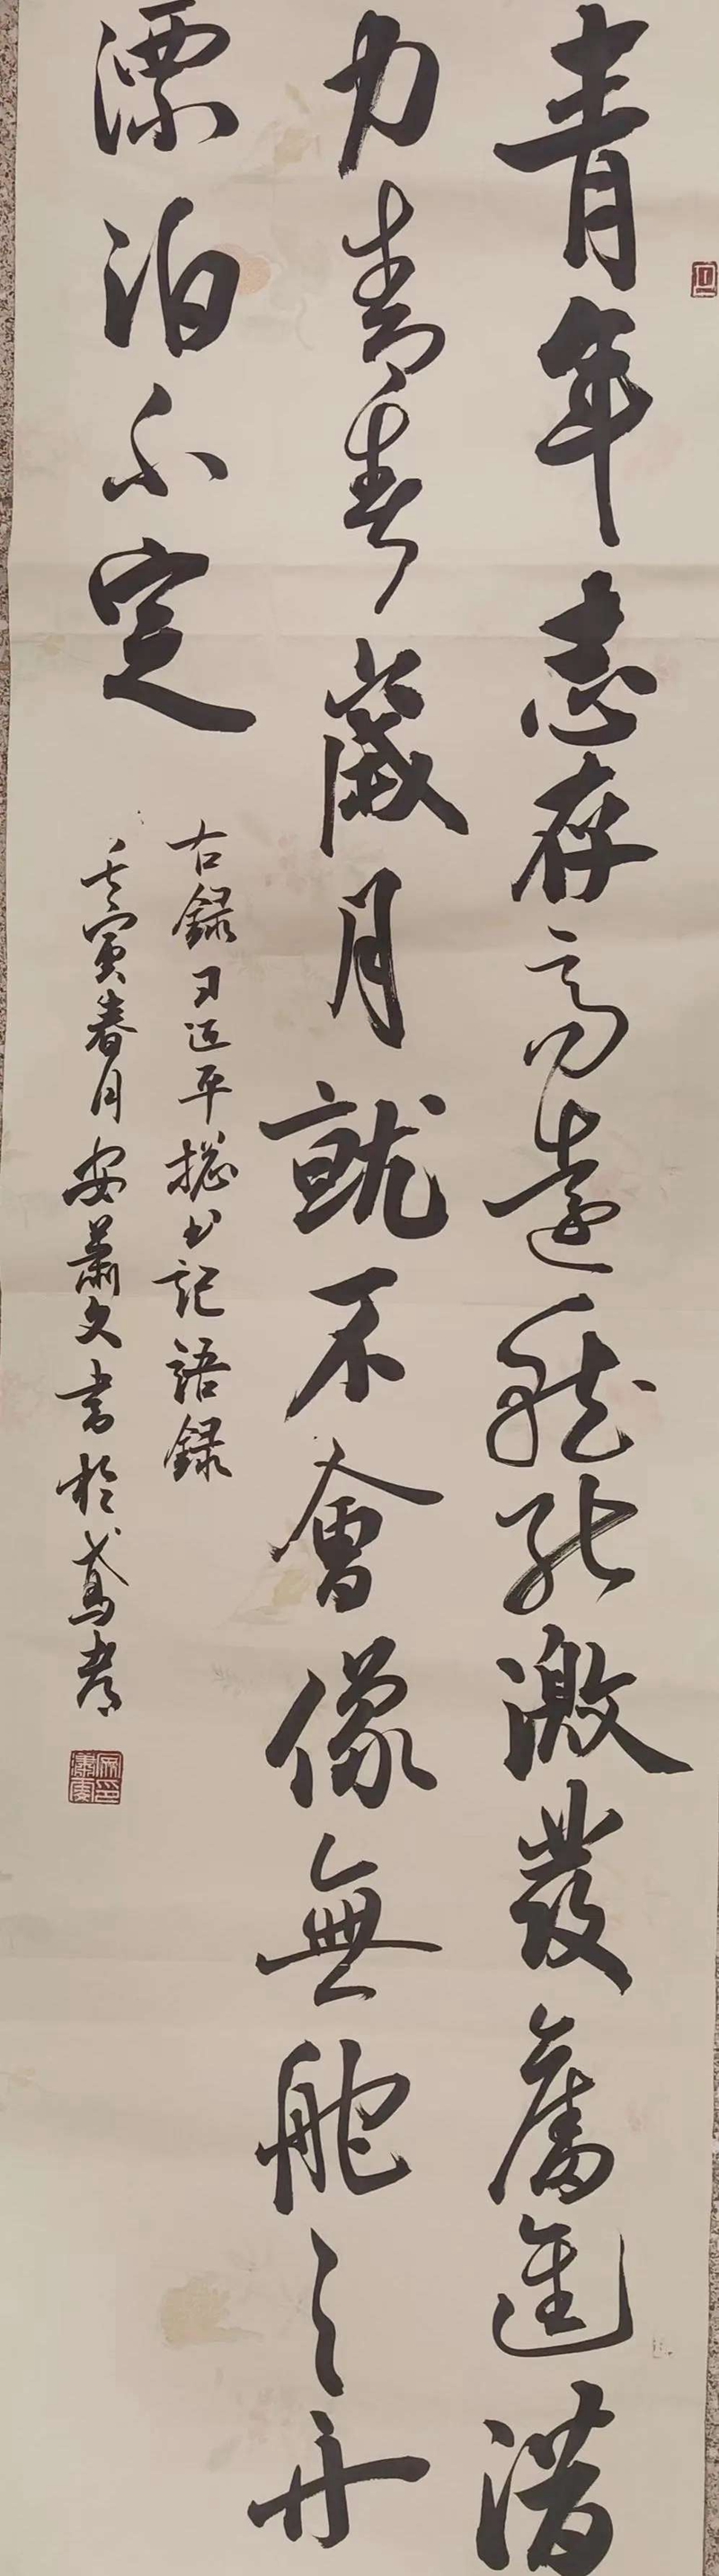 青年志存高遠就能激發奮進潛
力青春歲月就不會像無舵之舟
漂泊不定
右錄习近平總书記語錄
壬寅春月安蕭文書於鳶都